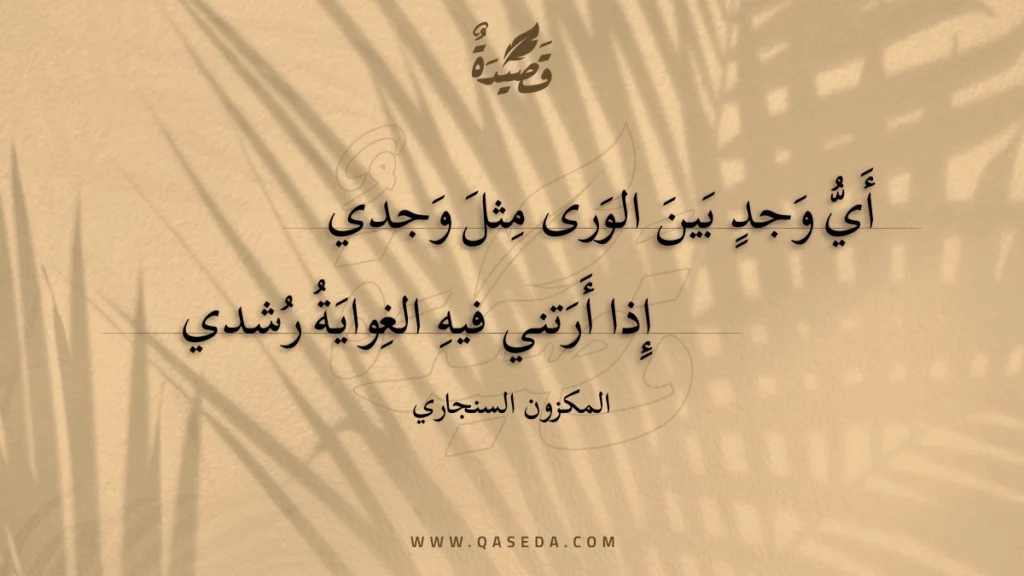 قَصِيدَةٌ
أَيُّ وَجدٍ بَينَ الوَرى مِثلَ وَجدي
إِذا أَرَتني فيهِ الغِوايَةُ رُشدي
المكزون السنجاري
WWW.QASEDA.COM